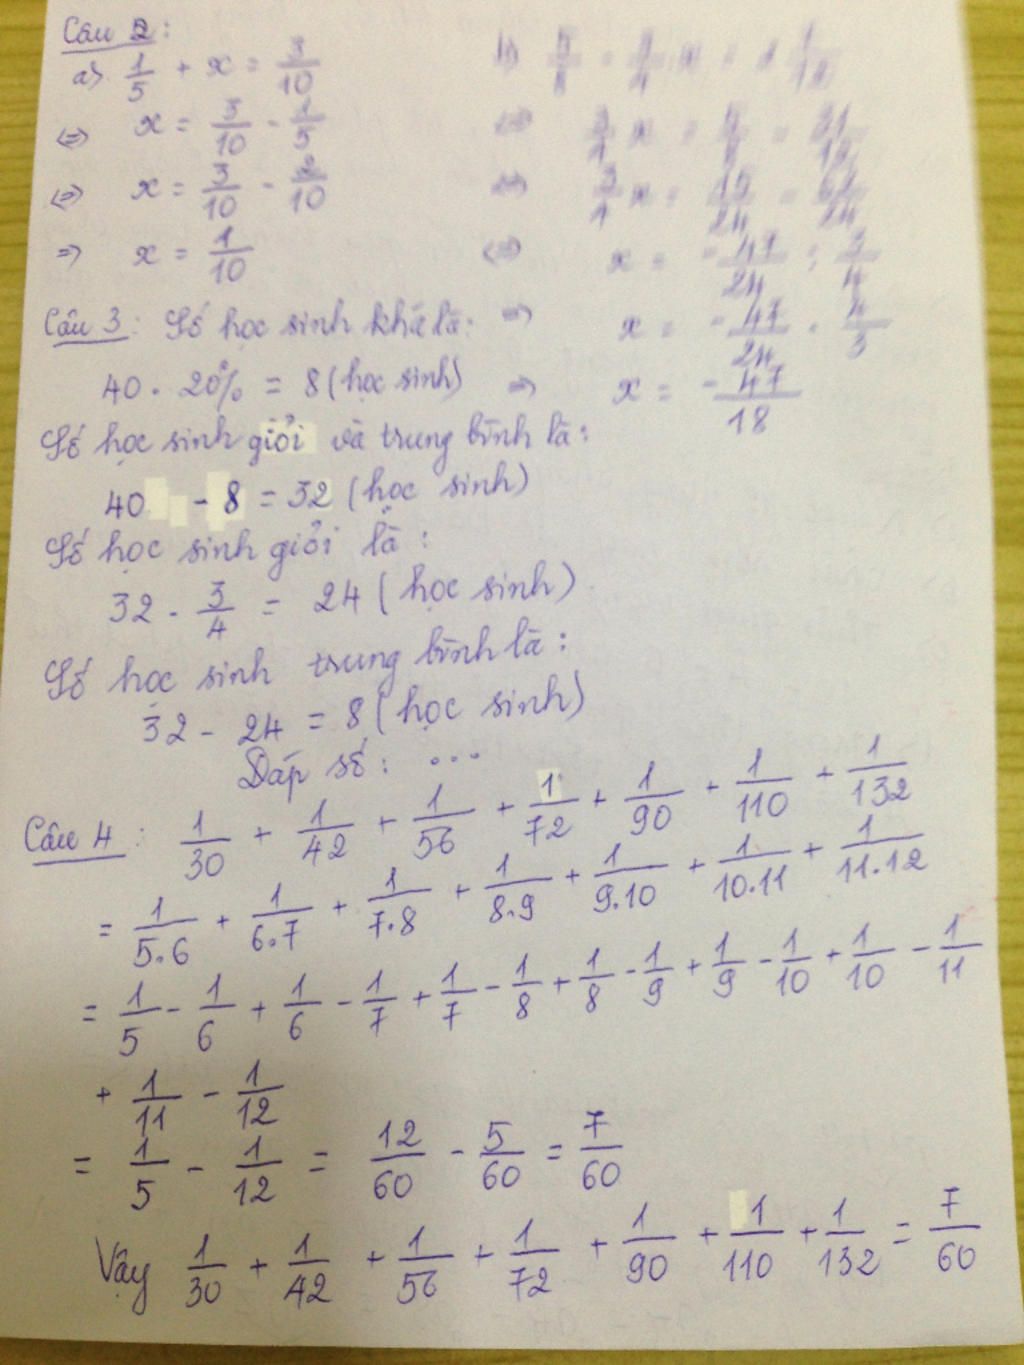 Câu 2:
a) 1/5 + x = 3/10
⇔ x = 3/10 - 1/5
⇔ x = 3/10 - 2/10
⇒ x = 1/10
⇔ x = -47/24 : 3/4
⇒ x = -47/24 . 4/3
⇒ x = -47/18
Câu 3: Số học sinh khá là:
40 . 20% = 8 (học sinh)
Số học sinh giỏi và trung bình là:
40 - 8 = 32 (học sinh)
Số học sinh giỏi là:
32 . 3/4 = 24 (học sinh)
Số học sinh trung bình là:
32 - 24 = 8 (học sinh)
Đáp số: ...
Câu 4: 1/30 + 1/42 + 1/56 + 1/72 + 1/90 + 1/110 + 1/132
= 1/5.6 + 1/6.7 + 1/7.8 + 1/8.9 + 1/9.10 + 1/10.11 + 1/11.12
= 1/5 - 1/6 + 1/6 - 1/7 + 1/7 - 1/8 + 1/8 - 1/9 + 1/9 - 1/10 + 1/10 - 1/11
+ 1/11 - 1/12
= 1/5 - 1/12 = 12/60 - 5/60 = 7/60
Vậy 1/30 + 1/42 + 1/56 + 1/72 + 1/90 + 1/110 + 1/132 = 7/60